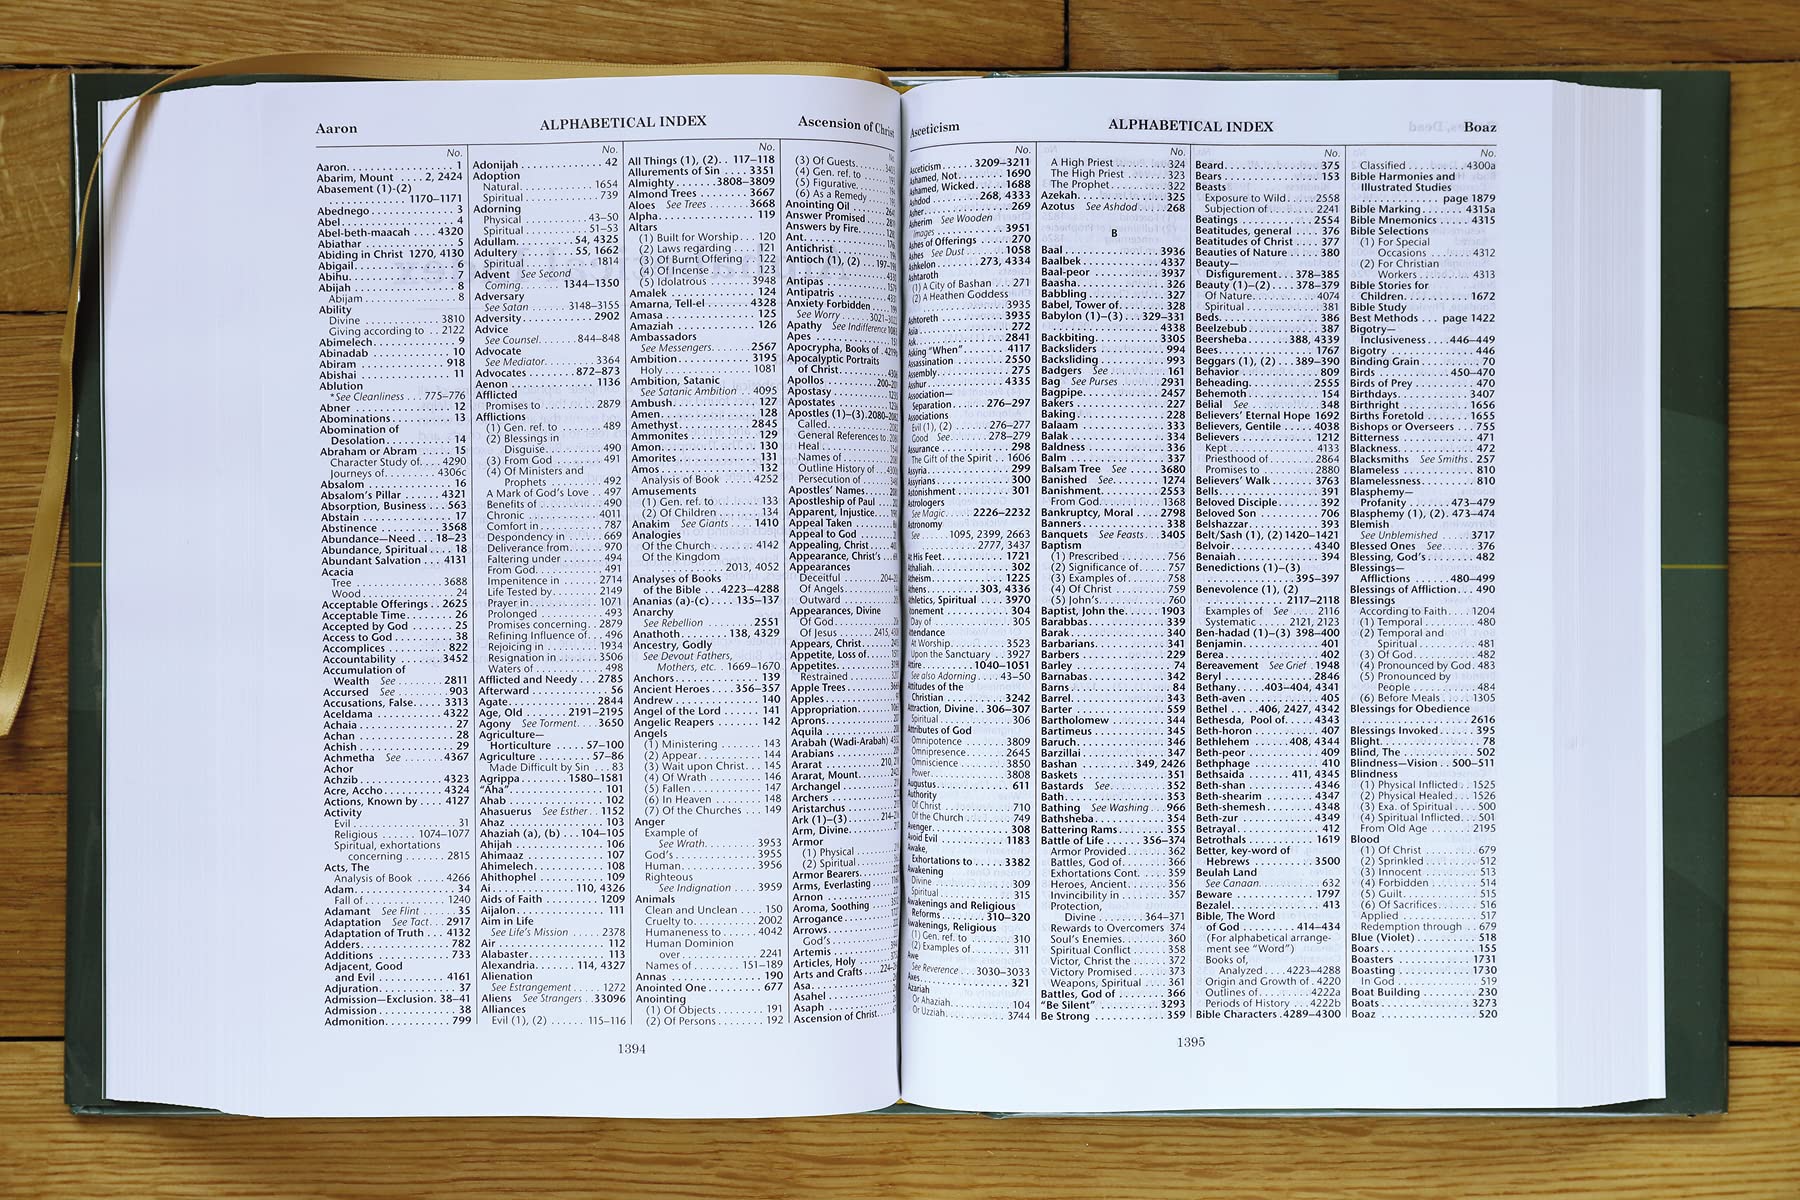 Aaron
ALPHABETICAL INDEX
Ascension of Christ
No.
Aaron 1
Abarim, Mount 2, 2424
Abasement (1)-(2)
1170–1171
Abednego 3
Abel 4
Abel-beth-maacah 4320
Abiathar 5
Abiding in Christ 1270, 4130
Abigail 6
Abihu 7
Abijah 8
Abijam 8
Ability
Divine 3810
Giving according to 2122
Abimelech 9
Abinadab 10
Abiram 918
Abishai 11
Ablution
*See Cleanliness 775–776
Abner 12
Abominations 13
Abomination of
Desolation 14
Abraham or Abram 15
Character Study of 4290
Journeys of 4306c
Absalom 16
Absalom's Pillar 4321
Absorption, Business 563
Abstain 17
Abstinence 3568
Abundance—Need 18–23
Abundance, Spiritual 18
Abundant Salvation 4131
Acacia
Tree 3688
Wood 24
Acceptable Offerings 2625
Acceptable Time 26
Accepted by God 25
Access to God 38
Accomplices 822
Accountability 3452
Accumulation of
Wealth See 2811
Accursed See 903
Accusations, False 3313
Aceldama 4322
Achaia 27
Achan 28
Achish 29
Achmetha See 4367
Achor
Achzib 4323
Acre, Accho 4324
Actions, Known by 4127
Activity
Evil 31
Religious 1074–1077
Spiritual, exhortations
concerning 2815
Acts, The
Analysis of Book 4266
Adam 34
Fall of 1240
Adamant See Flint 35
Adaptation See Tact 2917
Adaptation of Truth 4132
Adders 782
Additions 733
Adjacent, Good
and Evil 4161
Adjuration 37
Admission—Exclusion 38–41
Admission 38
Admonition 799
Adonijah 42
Adoption
Natural 1654
Spiritual 739
Adorning
Physical 43–50
Spiritual 51–53
Adullam 54, 4325
Adultery 55, 1662
Spiritual 1814
Advent See Second
Coming 1344–1350
Adversary
See Satan 3148–3155
Adversity 2902
Advice
See Counsel 844–848
Advocate
See Mediator 3364
Advocates 872–873
Aenon 1136
Afflicted
Promises to 2879
Afflictions
(1) Gen. ref. to 489
(2) Blessings in
Disguise 490
(3) From God 491
(4) Of Ministers and
Prophets 492
A Mark of God's Love 497
Benefits of 490
Chronic 4011
Comfort in 787
Despondency in 669
Deliverance from 970
Faltering under 494
From God 491
Impenitence in 2714
Life Tested by 2149
Prayer in 1071
Prolonged 493
Promises concerning 2879
Refining Influence of 496
Rejoicing in 1934
Resignation in 3506
Waters of 498
Afflicted and Needy 2785
Afterward 56
Agate 2844
Age, Old 2191–2195
Agony See Torment 3650
Agriculture—
Horticulture 57–100
Agriculture 57–86
Made Difficult by Sin 83
Agrippa 1580–1581
"Aha" 101
Ahab 102
Ahasuerus See Esther 1152
Ahaz 103
Ahaziah (a), (b) 104–105
Ahijah 106
Ahimaaz 107
Ahimelech 108
Ahithophel 109
Ai 110, 4326
Aids of Faith 1209
Aijalon 111
Aim in Life
See Life's Mission 2378
Air 112
Alabaster 113
Alexandria 114, 4327
Alienation
See Estrangement 1272
Aliens See Strangers 33096
Alliances
Evil (1), (2) 115–116
All Things (1), (2) 117–118
Allurements of Sin 3351
Almighty 3808–3809
Almond Trees 3667
Aloes See Trees 3668
Alpha 119
Altars
(1) Built for Worship 120
(2) Laws regarding 121
(3) Of Burnt Offering 122
(4) Of Incense 123
(5) Idolatrous 3948
Amalek 124
Amarna, Tell-el 4328
Amasa 125
Amaziah 126
Ambassadors
See Messengers 2567
Ambition 3195
Holy 1081
Ambition, Satanic
See Satanic Ambition 4095
Ambush 127
Amen 128
Amethyst 2845
Ammonites 129
Amon 130
Amorites 131
Amos 132
Analysis of Book 4252
Amusements
(1) Gen. ref. to 133
(2) Of Children 134
Anakim See Giants 1410
Analogies
Of the Church 4142
Of the Kingdom
2013, 4052
Analyses of Books
of the Bible 4223–4288
Ananias (a)-(c) 135–137
Anarchy
See Rebellion 2551
Anathoth 138, 4329
Ancestry, Godly
See Devout Fathers,
Mothers, etc. 1669–1670
Anchors 139
Ancient Heroes 356–357
Andrew 140
Angel of the Lord 141
Angelic Reapers 142
Angels
(1) Ministering 143
(2) Appear 144
(3) Wait upon Christ 145
(4) Of Wrath 146
(5) Fallen 147
(6) In Heaven 148
(7) Of the Churches 149
Anger
Example of
See Wrath 3953
God's 3955
Human 3956
Righteous
See Indignation 3959
Animals
Clean and Unclean 150
Cruelty to 2002
Humaneness to 4042
Human Dominion
over 2241
Names of 151–189
Annas 190
Anointed One 677
Anointing
(1) Of Objects 191
(2) Of Persons 192
(3) Of Guests
(4) Gen. ref. to
(5) Figurative
(6) As a Remedy
Anointing Oil
Answer Promised
Answers by Fire
Ant
Antichrist
Antioch (1), (2)
Antipas
Antipatris
Anxiety Forbidden
See Worry
Apathy See Indifference
Apes
Apocrypha, Books of
Apocalyptic Portraits
of Christ
Apollos
Apostasy
Apostates
Apostles (1)–(3)
Called
General References to
Heal
Names of
Outline History of
Persecution of
Apostles' Names
Apostleship of Paul
Apparent, Injustice
Appeal Taken
Appeal to God
Appealing, Christ
Appearance, Christ's
Appearances
Deceitful
Of Angels
Outward
Appearances, Divine
Of God
Of Jesus
Appears, Christ
Appetite, Loss of
Appetites
Restrained
Apple Trees
Apples
Appropriation
Aprons
Aquila
Arabah (Wadi-Arabah)
Arabians
Ararat
Ararat, Mount
Archangel
Archers
Aristarchus
Ark (1)–(3)
Arm, Divine
Armor
(1) Physical
(2) Spiritual
Armor Bearers
Arms, Everlasting
Arnon
Aroma, Soothing
Arrogance
Arrows
God's
Artemis
Articles, Holy
Arts and Crafts
Asa
Asahel
Asaph
Ascension of Christ
1394
Asceticism
ALPHABETICAL INDEX
Boaz
No.
Asceticism 3209–3211
Ashamed, Not 1690
Ashamed, Wicked 1688
Ashdod 268, 4333
Asher 269
Asherim See Wooden
Images 3951
Ashes of Offerings 270
Ashes See Dust 1058
Ashkelon 273, 4334
Ashtaroth
(1) A City of Bashan 271
(2) A Heathen Goddess
3935
Ashtoreth 3935
Asia 272
Ask 2841
Asking "When" 4117
Assassination 2550
Assembly 275
Asshur 4335
Association—
Separation 276–297
Associations
Evil (1), (2) 276–277
Good See 278–279
Assurance 298
The Gift of the Spirit 1606
Assyria 299
Assyrians 300
Astonishment 301
Astrologers
See Magic 2226–2232
Astronomy
See 1095, 2399, 2663
2777, 3437
At His Feet 1721
Athaliah 302
Atheism 1225
Athens 303, 4336
Athletics, Spiritual 3760
Atonement 304
Day of 305
Attendance
At Worship 3523
Upon the Sanctuary 3927
Attire 1040–1051
See also Adorning 43–50
Attitudes of the
Christian 3242
Attraction, Divine 306–307
Spiritual 306
Attributes of God
Omnipotence 3809
Omnipresence 2645
Omniscience 3850
Power 3808
Augustus 611
Authority
Of Christ 710
Of the Church 749
Avenger 308
Avoid Evil 1183
Awake,
Exhortations to 3382
Awakening
Divine 309
Spiritual 315
Awakenings and Religious
Reforms 310–320
Awakenings, Religious
(1) Gen. ref. to 310
(2) Examples of 311
Awe
See Reverence 3030–3033
Axes 321
Azariah
Or Ahaziah 104
Or Uzziah 3744
A High Priest 324
The High Priest 323
The Prophet 322
Azekah 325
Azotus See Ashdod 268
B
Baal 3936
Baalbek 4337
Baal-peor 3937
Baasha 326
Babbling 327
Babel, Tower of 328
Babylon (1)–(3) 329–331
4338
Backbiting 3305
Backsliders 994
Backsliding 993
Badgers See 161
Bag See Purses 2931
Bagpipe 2457
Bakers 227
Baking 228
Balaam 333
Balak 334
Baldness 336
Balm 337
Balsam Tree See 3680
Banished See 1274
Banishment 2553
From God 1368
Bankruptcy, Moral 2798
Banners 338
Banquets See Feasts 3405
Baptism
(1) Prescribed 756
(2) Significance of 757
(3) Examples of 758
(4) Of Christ 759
(5) John's 760
Baptist, John the 1903
Barabbas 339
Barak 340
Barbarians 341
Barbers 229
Barley 74
Barnabas 342
Barns 84
Barrel 343
Barter 559
Bartholomew 344
Bartimeus 345
Baruch 346
Barzillai 347
Bashan 349, 2426
Baskets 351
Bastards See 352
Bath 353
Bathing See Washing 966
Bathsheba 354
Battering Rams 355
Battle of Life 356–374
Armor Provided 362
Battles, God of 366
Exhortations Cont. 359
Heroes, Ancient 356
Invincibility in 357
Protection,
Divine 364–371
Rewards to Overcomers 374
Soul's Enemies 360
Spiritual Conflict 358
Victor, Christ the 372
Victory Promised 373
Weapons, Spiritual 361
Battles, God of 366
"Be Silent" 3293
Be Strong 359
Beard 375
Bears 153
Beasts
Exposure to Wild 2558
Subjection of 2241
Beatings 2554
Beatitudes, general 376
Beatitudes of Christ 377
Beauties of Nature 380
Beauty—
Disfigurement 378–385
Beauty (1)–(2) 378–379
Of Nature 4074
Spiritual 381
Beds 386
Beelzebub 387
Beersheba 388, 4339
Bees 1767
Beggars (1), (2) 389–390
Behavior 809
Beheading 2555
Behemoth 154
Belial See 348
Believers' Eternal Hope 1692
Believers, Gentile 4038
Believers 1212
Kept 4133
Priesthood of 2864
Promises to 2880
Believers' Walk 3763
Bells 391
Beloved Disciple 392
Beloved Son 706
Belshazzar 393
Belt/Sash (1), (2) 1420–1421
Belvoir 4340
Benaiah 394
Benedictions (1)–(3)
395–397
Benevolence (1), (2)
2117–2118
Examples of See 2116
Systematic 2121, 2123
Ben-hadad (1)–(3) 398–400
Benjamin 401
Berea 402
Bereavement See Grief 1948
Beryl 2846
Bethany 403–404, 4341
Beth-aven 405
Bethel 406, 2427, 4342
Bethesda, Pool of 4343
Beth-horon 407
Bethlehem 408, 4344
Beth-peor 409
Bethphage 410
Bethsaida 411, 4345
Beth-shan 4346
Beth-shearim 4347
Beth-shemesh 4348
Beth-zur 4349
Betrayal 412
Betrothals 1619
Better, key-word of
Hebrews 3500
Beulah Land
See Canaan 632
Beware 1797
Bezalel 413
Bible, The Word
of God 414–434
(For alphabetical arrange-
ment see "Word")
Books of,
Analyzed 4223–4288
Origin and Growth of 4220
Outlines of 4222a
Periods of History 4222b
Bible Characters 4289–4300
Classified 4300a
Bible Harmonies and
Illustrated Studies
page 1879
Bible Marking 4315a
Bible Mnemonics 4315
Bible Selections
(1) For Special
Occasions 4312
(2) For Christian
Workers 4313
Bible Stories for
Children 1672
Bible Study
Best Methods page 1422
Bigotry—
Inclusiveness 446–449
Bigotry 446
Binding Grain 70
Birds 450–470
Birds of Prey 470
Birthdays 3407
Birthright 1656
Births Foretold 1655
Bishops or Overseers 755
Bitterness 471
Blackness 472
Blacksmiths See Smiths 257
Blameless 810
Blamelessness 810
Blasphemy—
Profanity 473–479
Blasphemy (1), (2) 473–474
Blemish
See Unblemished 3717
Blessed Ones See 376
Blessing, God's 482
Blessings—
Afflictions 480–499
Blessings of Affliction 490
Blessings
According to Faith 1204
(1) Temporal 480
(2) Temporal and
Spiritual 481
(3) Of God 482
(4) Pronounced by God 483
(5) Pronounced by
People 484
(6) Before Meals 1305
Blessings for Obedience
2616
Blessings Invoked 395
Blight 78
Blind, The 502
Blindness—Vision 500–511
Blindness
(1) Physical Inflicted 1525
(2) Physical Healed 1526
(3) Exa. of Spiritual 500
(4) Spiritual Inflicted 501
From Old Age 2195
Blood
(1) Of Christ 679
(2) Sprinkled 512
(3) Innocent 513
(4) Forbidden 514
(5) Guilt 515
(6) Of Sacrifices 516
Applied 517
Redemption through 679
Blue (Violet) 518
Boars 155
Boasters 1731
Boasting 1730
In God 519
Boat Building 230
Boats 3273
Boaz 520
1395